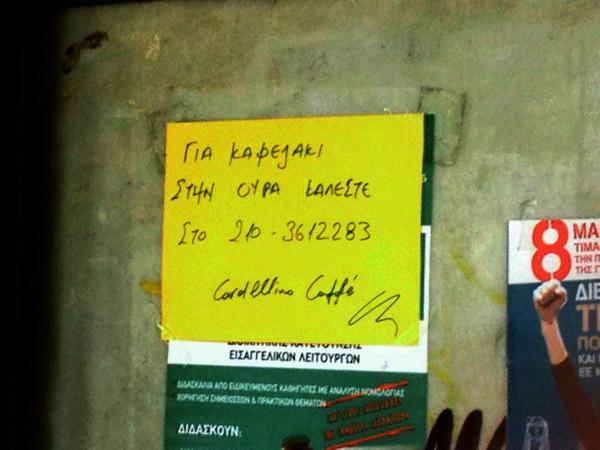 ΓΙΑ ΚΑΦΕΔΑΚΙ
ΣΤΗΝ ΟΥΡΑ ΚΑΛΕΣΤΕ
ΣΤΟ 210-3612283
Cardellino Caffé
ΔΙΟΙΚΗΤΙΚΗΣ ΚΑΤΕΥΘΥΝΣΗΣ
ΕΙΣΑΓΓΕΛΙΚΩΝ ΛΕΙΤΟΥΡΓΩΝ
ΔΙΔΑΣΚΑΛΙΑ ΑΠΟ ΕΙΔΙΚΕΥΜΕΝΟΥΣ ΚΑΘΗΓΗΤΕΣ ΜΕ ΑΝΑΛΥΣΗ ΝΟΜΟΛΟΓΙΑΣ
ΧΟΡΗΓΗΣΗ ΣΗΜΕΙΩΣΕΩΝ & ΠΡΑΚΤΙΚΩΝ ΘΕΜΑΤΩΝ
ΔΙΔΑΣΚΟΥΝ:
8 ΜΑ
ΤΙΜΑ
ΤΗΝ Π
ΤΗΣ Γ
ΔΙΕ
ΠΟ
ΚΑΙ
ΕΕ Κ